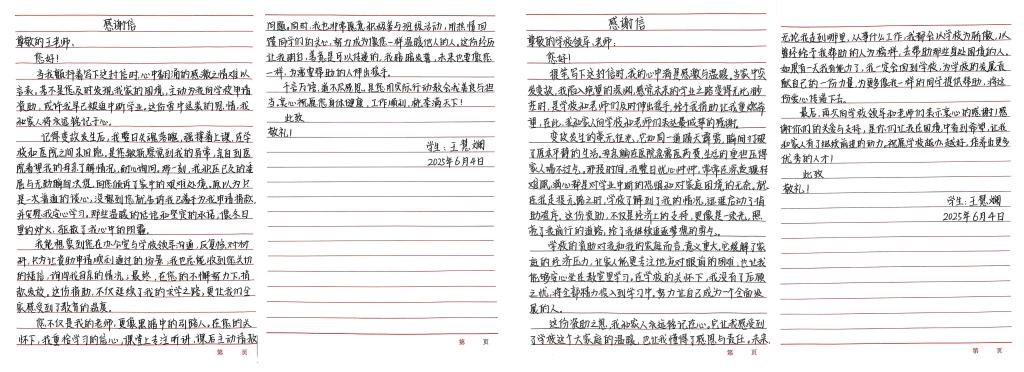 感谢信
尊敬的王老师：
您好！
当我颤抖着写下这封信时，心中翻涌的感激之情难以
言表。若不是您及时发现我家的困境，主动为我向学校申请
资助，或许我早已辍学中断学业。这份雪中送炭的恩情，我
和家人将永远铭记于心。
记得变故发生后，我整日失魂落魄，强撑着上课，在学
校和医院之间来回跑。是您敏锐察觉到我的异常，亲自到医
院看望我的母亲了解情况，耐心询问。那一刻，我把压已久的
与无助瞬间决堤，向您倾诉了家中的艰难处境。原以为只
是一次普通的谈心，没想到您就告诉我已着手为我申请捐款，
并宽慰我安心学习。那些温暖的话语和坚定的承诺，像冬日
里的炉火，驱散了我心中的阴霾。
我能想象到您在办公室与学校领导沟通，反复核对材
料，只为让资助申请顺利通过的场景；我也忘能收到您关切
的短信，询问我母亲的情况；最终，在您的不懈努力下，捐
款发放。这份捐助，不仅延续了我的求学之路，更让我们全
家感受到了教育的温度。
您不仅是我的老师，更像黑暗中的引路人。在您的关
怀下，我重拾学习的信心，课堂上专注听讲，课后主动请教
第 页
问题。同时，我也非常愿意积极参与班级活动，用热情回
馈同学们的关心，努力成为像您一样温暖他人的人。这份经历
让我明白，善意是可以传递的，我暗暗发誓，未来也要像您
一样，为需要帮助的人伸出援手。
千言万语，道不尽感恩。且您用实际行动教会我善良与担
当，衷心祝愿您身体健康，工作顺利，桃李满天下！
此致
敬礼！
学生：王楚斓
2025年6月4日
第 页
感谢信
尊敬的学校领导、老师：
您好！
提笔写下这封信时，我的心中满是感激与温暖。当家中突
发变故，我陷入绝望的深渊，感觉未来的学业之路变得无比渺
茫时，是学校和老师们及时伸出援手，给予我捐助让我重燃希
望，在此，我和家人向学校和老师们表达最诚挚的感谢。
变故发生的毫无征兆，它如同一道晴天霹雳，瞬间打破
了原本平静的生活。母亲躺在医院急需医药费，生活的重担压得
家人喘不过气。那段时间，我整日忧心忡忡，常常在深夜辗转
难眠，满心都是对学业中断的恐惧和对家庭困境的无奈。就
在我走投无路之时，学校了解到我的情况，迅速启动了捐
助程序。这份资助，不仅是经济上的支持，更像是一束光，照
亮了我前行的道路，给了我继续追逐梦想的勇气。
学校的资助对我和我的家庭而言，意义重大。它缓解了家
庭的经济压力，让家人能更专注地应对眼前的困难，也让我
能够安心坐在教室里学习。在学校的关怀下，我没有了后顾
之忧，将全部精力投入到学习中，努力让自己成为一个全面发
展的人。
这份资助之恩，我和家人永远铭记在心。它让我感受到
了学校这个大家庭的温暖，也让我懂得了感恩与责任。未来
第 页
无论我走到哪里，从事什么工作，我都会以学校为骄傲，以
曾经给予我帮助的人为榜样，去帮助那些身处困境的人。
如果有一天我有能力了，我一定会回到学校，为学校的发展贡
献自己的一份力量，为更多像我一样的同学提供帮助，将这
份爱心传递下去。
最后，再次向学校领导和老师们表示衷心的感谢！感
谢你们的关爱与支持，是你们让我在困境中看到希望，让我
和家人有了继续前进的动力。祝愿学校越办越好，培养出更多
优秀的人才！
此致
敬礼！
学生：王楚斓
2025年6月4日
第 页